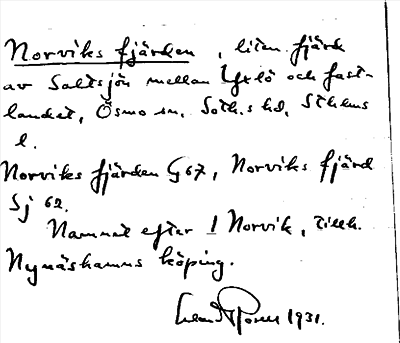 Norviks fjärden, liten fjärd
av Saltsjön mellan Yxlö och fast-
landet, Ösmo sn, Soth.s hd, Sthlms
l.
Norviks fjärden G 67, Norviks fjärd
Sj 62.
Namnet efter 1 Norvik, tillh.
Nynäshamns köping.
1931.